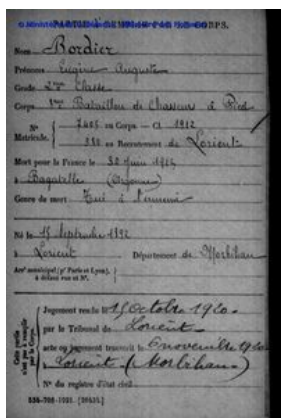 PARTIE À REMPLIR PAR LE CORPS.
Nom Bordier
Prénoms Eugène Auguste
Grade 2me Classe
Corps Bataillon de Chasseurs à Pied
N° Matricule. 7405 au Corps. — Cl 1912
au Recrutement de Lorient
Mort pour la France le 30 Juin 1915
à Bagatelle (Argonne)
Genre de mort Tué à l'ennemi
Né le 15 Septembre 1892
à Lorient Département de Morbihan
Arrt municipal (pr Paris et Lyon), à défaut rue et N°.
Cette partie n'est pas à remplir par le Corps.
Jugement rendu le 15 Octobre 1920
par le Tribunal de Lorient
acte ou jugement transcrit le 6 novembre 1920
à Lorient (Morbihan)
N° du registre d'état civil
534-708-1921. [26434.]